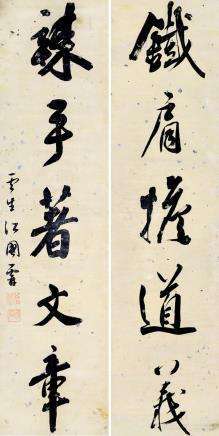 鐵肩擔道義
辣手著文章
雲生江國霖